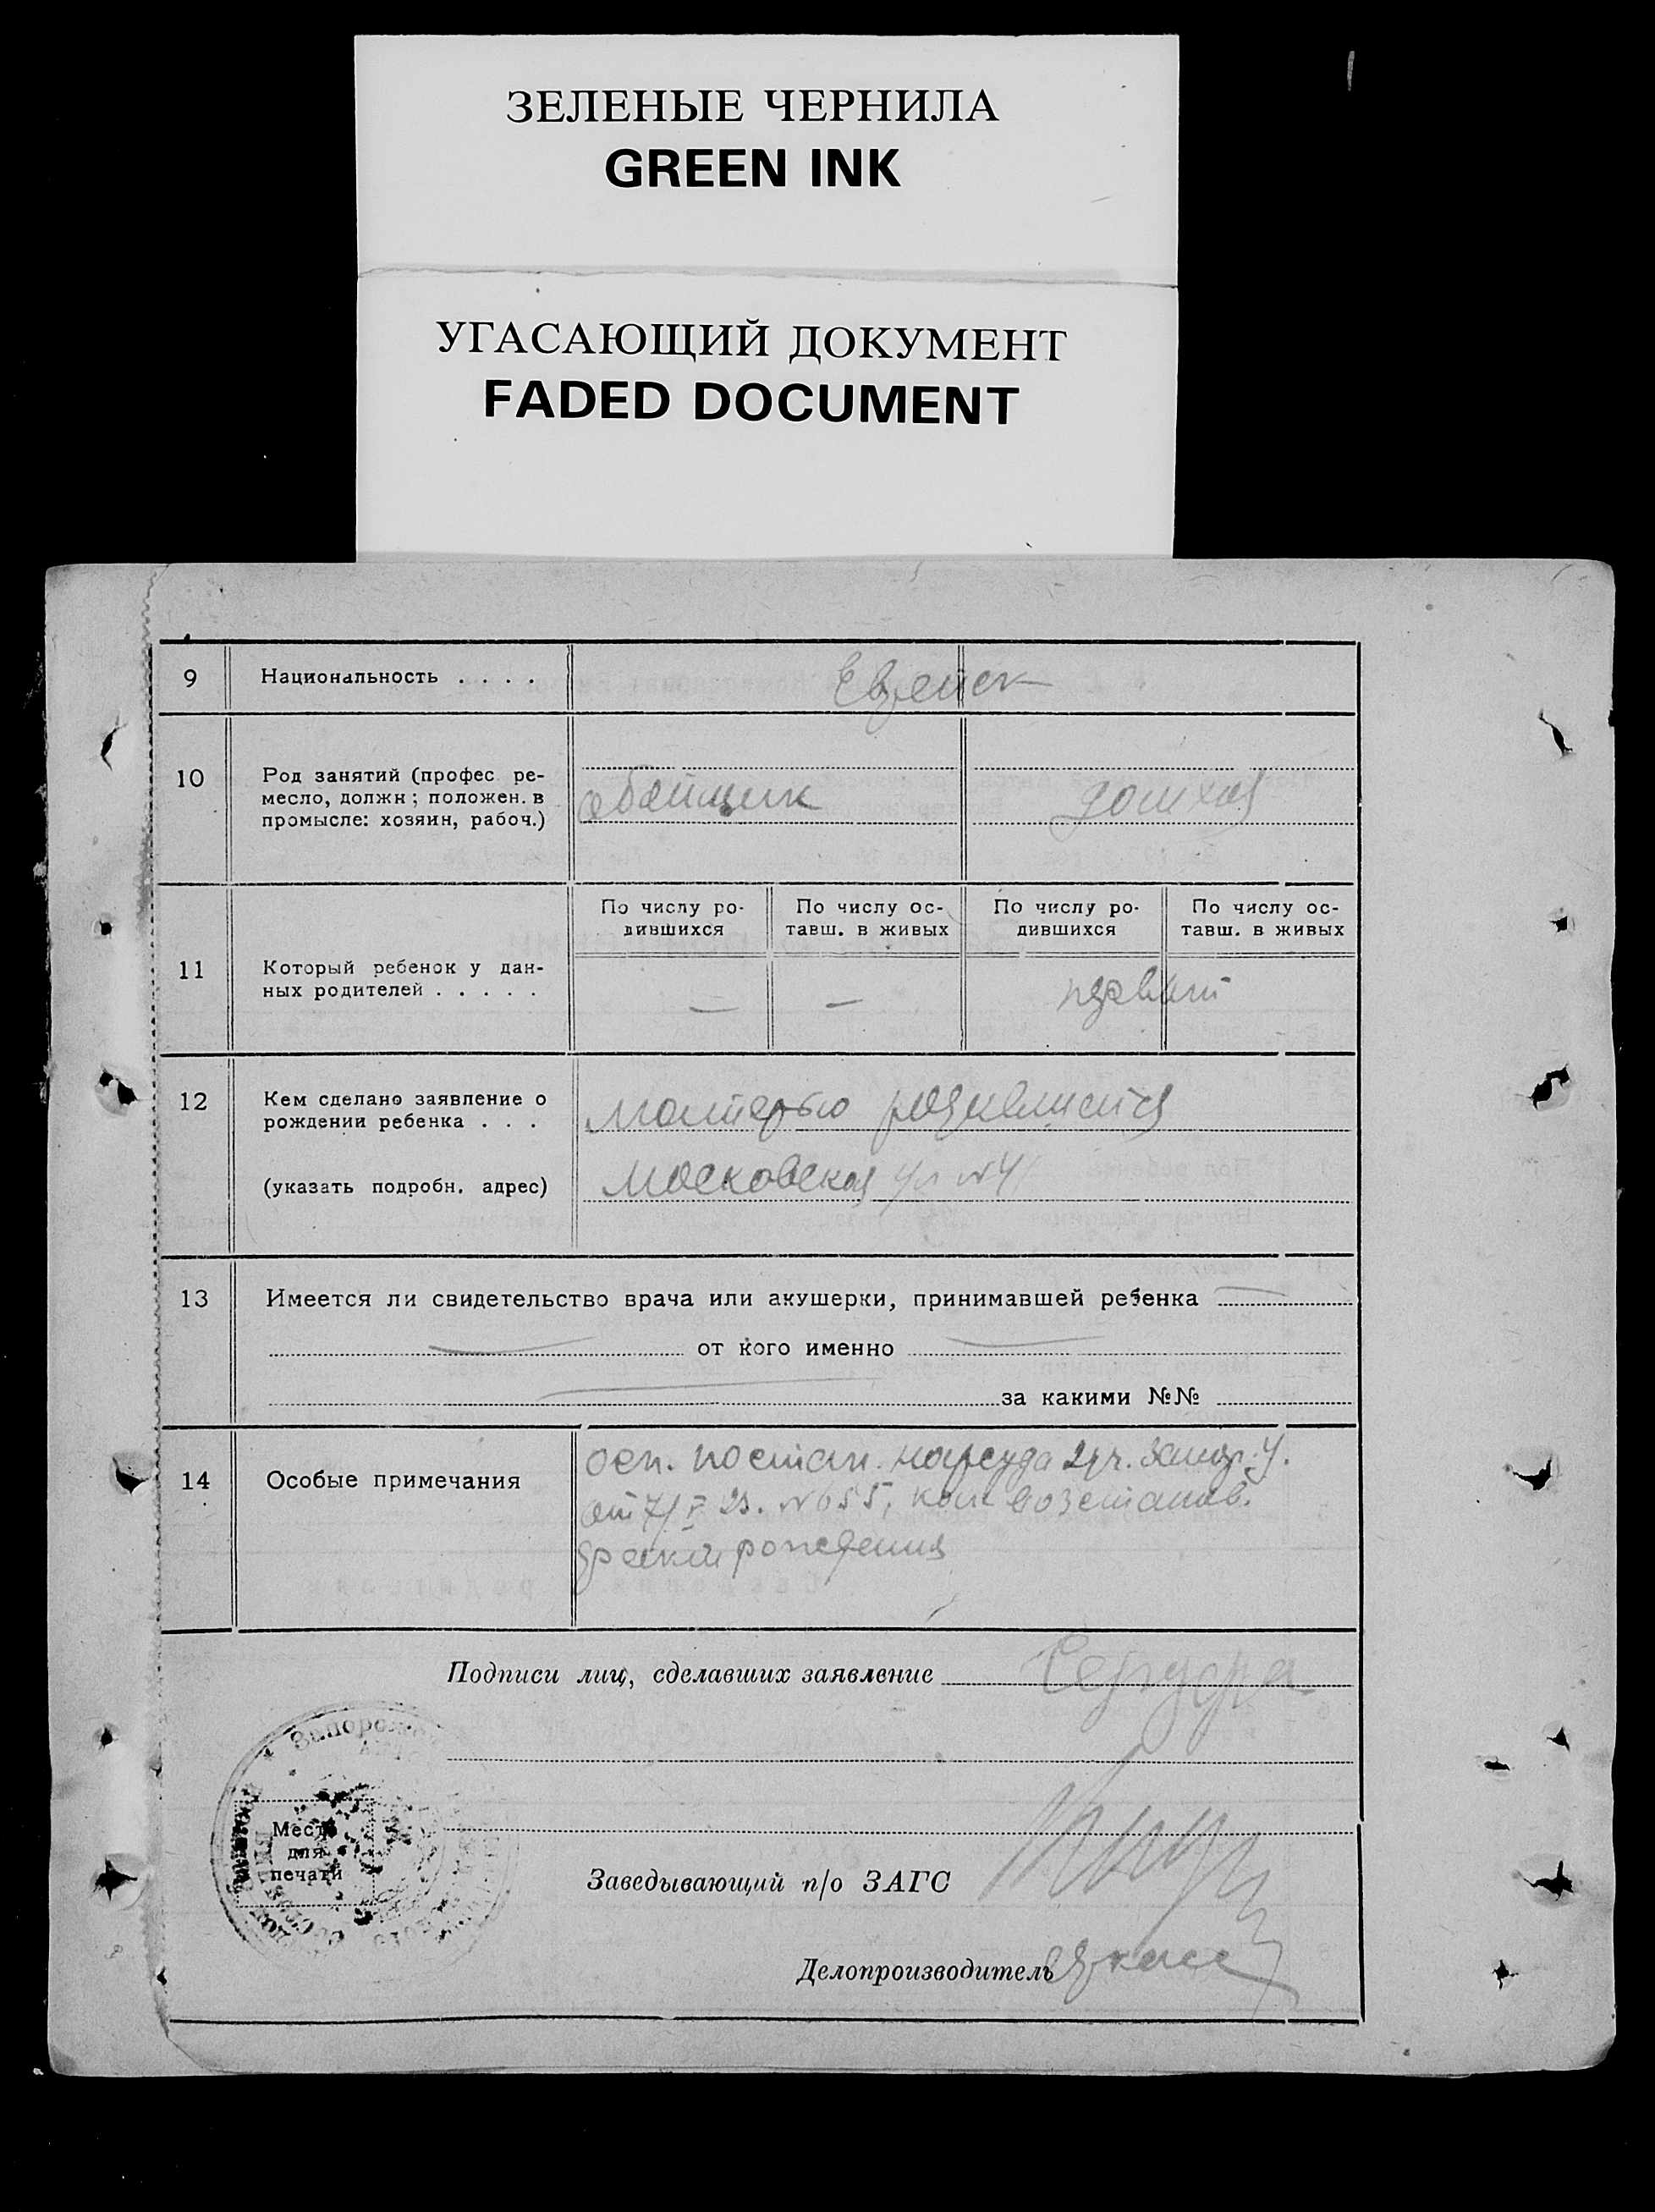 ЗЕЛЕНЫЕ ЧЕРНИЛА
GREEN INK
УГАСАЮЩИЙ ДОКУМЕНТ
FADED DOCUMENT
9 Национальность . . . . Еврейск
10 Род занятий (професс ре-
месло, должн; положен. в
промысле: хозяин, рабоч.)
обойщик домхоз
По числу ро-
дившихся
По числу ос-
тавш. в живых
По числу ро-
дившихся
По числу ос-
тавш. в живых
11 Который ребенок у дан-
ных родителей . . . . .
— — первый
12 Кем сделано заявление о
рождении ребенка . . .
матерью
(указать подробн. адрес) Московская ул №41
13 Имеется ли свидетельство врача или акушерки, принимавшей ребенка —
— от кого именно —
— за какими №№
14 Особые примечания
осн. постан. нарсуда 2 уч. Запор. у.
от 7/V 23. №655, кои возстанов.
рождения
Подписи лиц, сделавших заявление
Запорож
Место
для
печати
Заведывающий п/о ЗАГС
Делопроизводитель